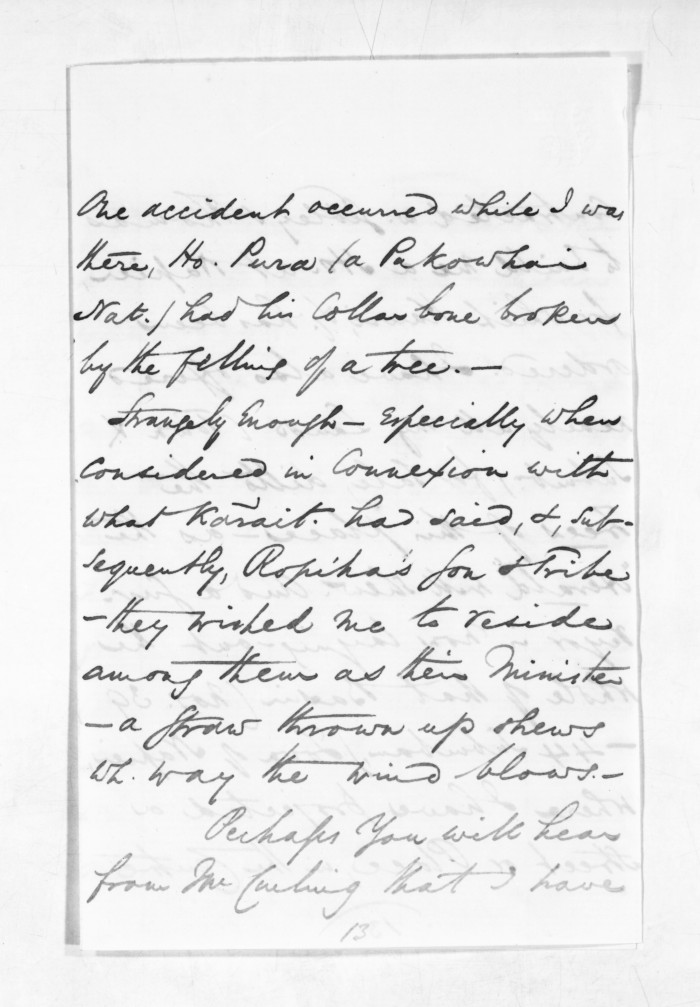 One accident occurred while I was
there, Ho. Pura (a Pakowhai
Nat.) had his Collar bone broken
by the felling of a tree. —
Strangely Enough — Especially when
Considered in Connexion with
what Karait. had said, &, sub-
sequently, Ropiha's Son & Tribe
— they wished me to reside
among them as their Minister
— a straw thrown up shews
wh. way the wind blows. —
Perhaps You will hear
from Mr Curling that I have
13